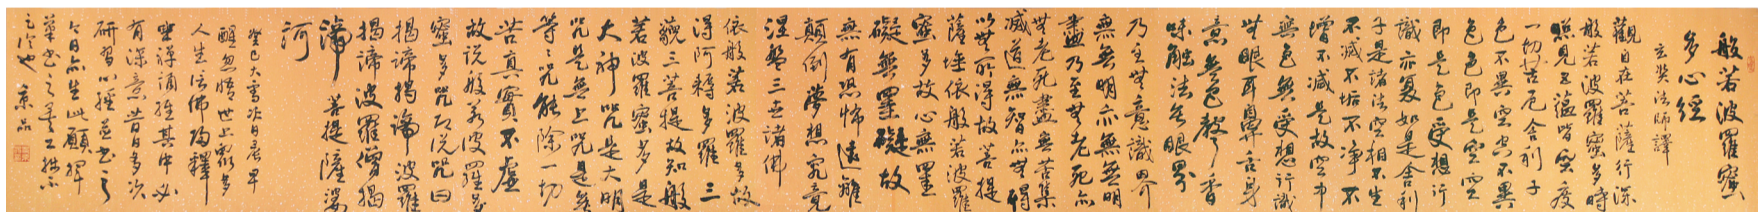 般若波羅蜜
多心經
玄奘法師譯
觀自在菩薩行深
般若波羅蜜多時
照見五蘊皆空度
一切苦厄舍利子
色不異空空不異
色色即是空空
即是色受想行
識亦復如是舍利
子是諸法空相不生
不滅不垢不淨不
增不減是故空中
無色無受想行識
無眼耳鼻舌身
意無色聲香
味觸法無眼界
乃至無意識界
無無明亦無無明
盡乃至無老死亦
無老死盡無苦集
滅道無智亦無得
以無所得故菩提
薩埵依般若波羅
蜜多故心無罣
礙無罣礙故
無有恐怖遠離
顛倒夢想究竟
涅槃三世諸佛
依般若波羅多故
得阿耨多羅三
藐三菩提故知般
若波羅蜜多是
大神咒是大明
咒是無上咒是無
等等咒能除一切
苦真實不虛
故說般若波羅蜜
蜜多咒即說咒曰
揭諦揭諦波羅
揭諦波羅僧揭
諦菩提薩婆
訶
癸巳大雪次日晨早
醒忽悟世上衆多
人生信佛陶釋
坐禪誦經其中必
有深意昔日多次
研習心經並書之
今日亦生此願揮